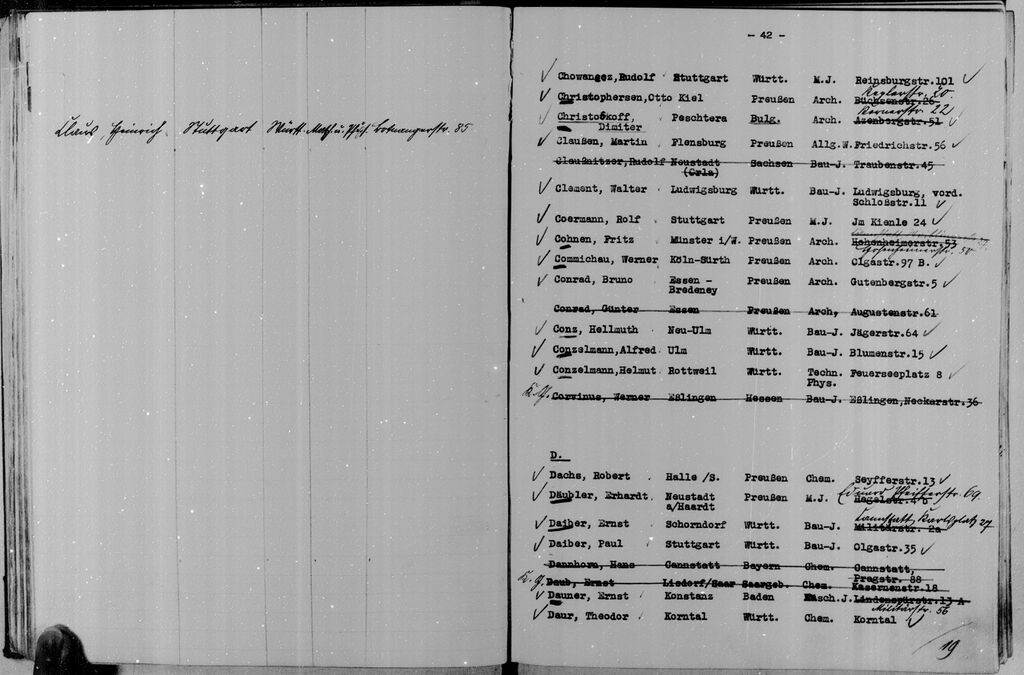 Claus, Heinrich. Stuttgart Württ. Math. u. Phys. Botnangerstr. 85
- 42 -
✓ Chowanecz, Rudolf Stuttgart Württ. M.J. Reinsburgstr.101 ✓
Keplerstr. 20.
✓ Christophersen,Otto Kiel Preußen Arch. Büchsenstr.26
Kernerstr. 22
✓ Christoskoff, Peschtera Bulg. Arch. Azenbergstr.51 ✓
Dimiter
✓ Claußen, Martin Flensburg Preußen Allg.W. Friedrichstr.56 ✓
Claußnitzer,Rudolf Neustadt Sachsen Bau-J. Traubenstr.45
(Orla)
✓ Clement, Walter Ludwigsburg Württ. Bau-J. Ludwigsburg, vord.
Schloßstr.11 ✓
✓ Coermann, Rolf Stuttgart Preußen M.J. Jm Kienle 24 ✓
✓ Cohnen, Fritz Münster i/W. Preußen Arch. Hohenheimerstr.53
Hohenheimerstr. 50
✓ Commichau, Werner Köln-Sürth Preußen Arch. Olgastr.97 B. ✓
✓ Conrad, Bruno Essen - Preußen Arch. Gutenbergstr.5 ✓
Bredeney
Conrad, Günter Essen Preußen Arch, Augustenstr.61
✓ Conz, Hellmuth Neu-Ulm Württ. Bau-J. Jägerstr.64 ✓
✓ Conzelmann,Alfred Ulm Württ. Bau-J. Blumenstr.15 ✓
✓ Conzelmann,Helmut Rottweil Württ. Techn. Feuerseeplatz 8 ✓
Phys.
Corvinus, Werner Eßlingen Hessen Bau-J. Eßlingen,Neckarstr.36
D.
✓ Dachs, Robert Halle /S. Preußen Chem. Seyfferstr.13 ✓
Eduard Pfeifferstr. 69
✓ Däubler, Erhardt Neustadt Preußen M.J. Hegelstr.4 b
a/Haardt
Cannstatt, Karlsplatz 27
✓ Daiber, Ernst Schorndorf Württ. Bau-J. Militärstr. 2a
✓ Daiber, Paul Stuttgart Württ. Bau-J. Olgastr.35 ✓
Dannhorn, Hans Cannstatt Bayern Chem. Cannstatt,
Pragstr. 88
Daub, Ernst Lisdorf/Saar Saargeb. Chem. Kasernenstr.18
✓ Dauner, Ernst Konstanz Baden Masch.J. Lindenspürstr.13 A
Militärstr. 56
✓ Daur, Theodor Korntal Württ. Chem. Korntal ✓
19